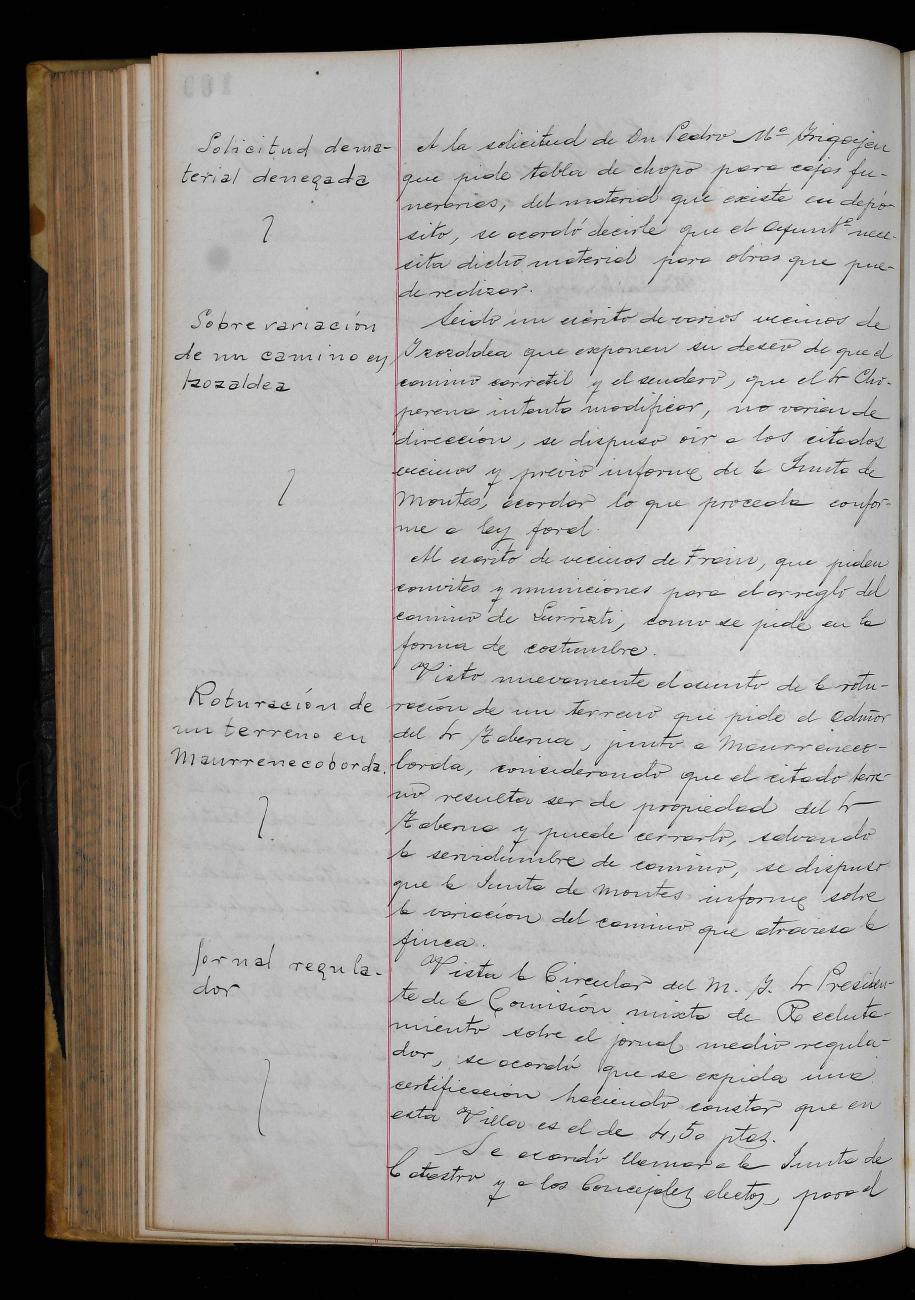 Solicitud de ma-
terial denegada
A la solicitud de Dn Pedro Mª Irigoyen
que pide tabla de chopo para cajas fu-
nerarias, del material que existe en depó-
sito, se acordó decirle que el Ayuntº nece-
sita dicho material para obras que pue-
de realizar.
Sobre variación
de un camino en
Izozaldea
Leido un escrito de varios vecinos de
Izozaldea que exponen su deseo de que el
camino carretil y el sendero, que el Sr Cho-
perena intenta modificar, no varien de
dirección, se dispuso oir a los citados
vecinos y previo informe de la Junta de
Montes, acordar lo que proceda confor-
me a ley foral.
Al escrito de vecinos de Frain, que piden
convites y municiones para el arreglo del
camino de Lurrizti, como se pide en la
forma de costumbre.
Roturación de
un terreno en
Maurrenecoborda.
Visto nuevamente el asunto de la rotu-
ración de un terreno que pide el Admor
del Sr Zaberna, junto a Maurreneco-
borda, considerando que el citado terre-
no resulta ser de propiedad del Sr
Zaberna y puede cerrarlo, salvando
la servidumbre de camino, se dispuso
que la Junta de Montes informe sobre
la variación del camino que atraviesa la
finca.
Jornal regula-
dor
Vista la Circular del M. I. Sr Presiden-
te de la Comisión mixta de Recluta-
miento sobre el jornal medio regula-
dor, se acordó que se expida una
certificación haciendo constar que en
esta Villa es el de 4,50 ptas.
Se acordó llamar a la Junta de
Catastro y a los Concejales electos, para el